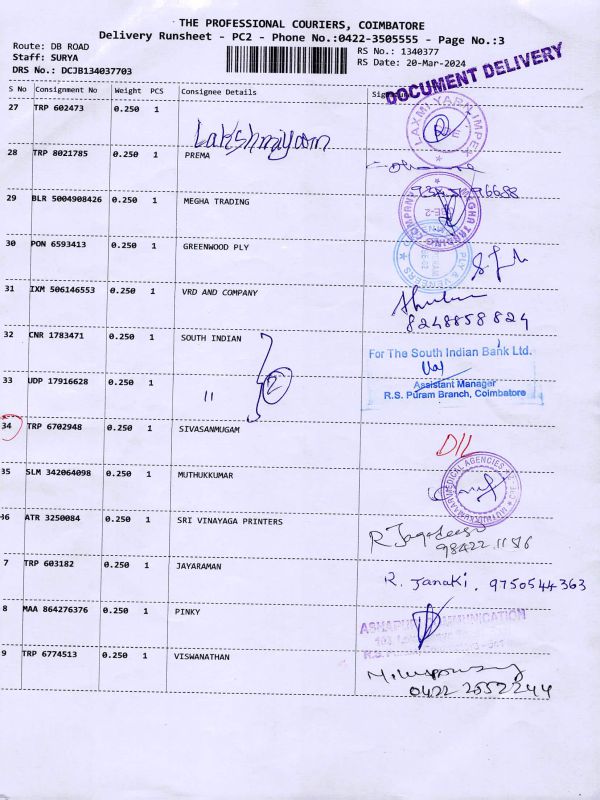 THE PROFESSIONAL COURIERS, COIMBATORE
Delivery Runsheet - PC2 - Phone No.:0422-3505555 - Page No.:3
Route: DB ROAD
Staff: SURYA
DRS No.: DCJB134037703
RS No.: 1340377
RS Date: 20-Mar-2024
DOCUMENT DELIVERY
S No Consignment No Weight PCS Consignee Details
27 TRP 602473 0.250 1
28 TRP 8021785 0.250 1 PREMA
29 BLR 5004908426 0.250 1 MEGHA TRADING
MEGHA TRADING COMPANY
30 PON 6593413 0.250 1 GREENWOOD PLY
31 IXM 506146553 0.250 1 VRD AND COMPANY
8248858824
32 CNR 1783471 0.250 1 SOUTH INDIAN
2
For The South Indian Bank Ltd.
Assistant Manager
R.S. Puram Branch, Coimbatore
33 UDP 17916628 0.250 1 11
34 TRP 6702948 0.250 1 SIVASANMUGAM
D/L
35 SLM 342064098 0.250 1 MUTHUKKUMAR
36 ATR 3250084 0.250 1 SRI VINAYAGA PRINTERS
98422 11516
7 TRP 603182 0.250 1 JAYARAMAN
R. Janaki. 9750544363
8 MAA 864276376 0.250 1 PINKY
9 TRP 6774513 0.250 1 VISWANATHAN
0422 2552244